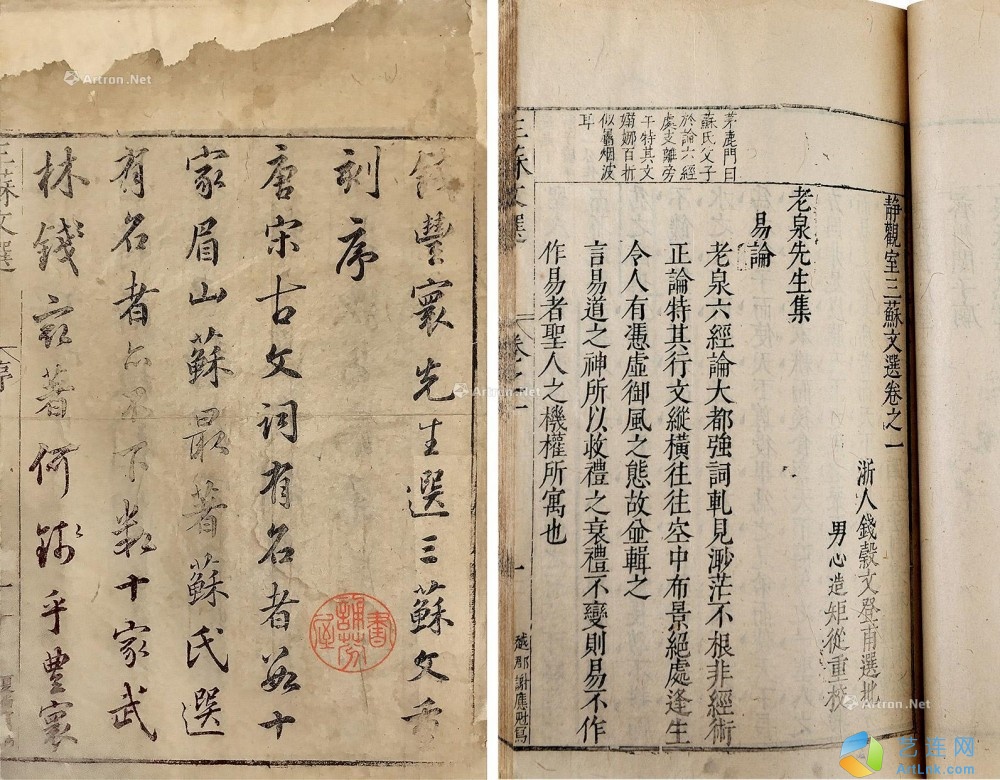 錢豐寰先生選三蘇文
刻序
唐宋古文詞有名者數十
家眉山蘇最著蘇氏選
有名者亦不下數十家武
林錢最著何錢乎豐寰
三蘇文選
序
一
誦芬
書屋
Artron.Net
靜觀室三蘇文選卷之一
浙人錢穀文登甫選批
男心造矩從重校
老泉先生集
易論
老泉六經論大都強詞軋見渺茫不根非經術
正論特其行文縱橫往往空中布景絕處逢生
令人有憑虛御風之態故並輯之
言易道之神所以收禮之衰禮不變則易不作
作易者聖人之機權所寓也
茅鹿門曰
蘇氏父子
於論六經
處支離旁
干特其文
嫋娜百折
似屬烟波
耳
三蘇文選
卷之一
一
越郡謝應魁寫
Artron.Net
Artron.Net
Artron.Net
艺连网
ArtLnk.com